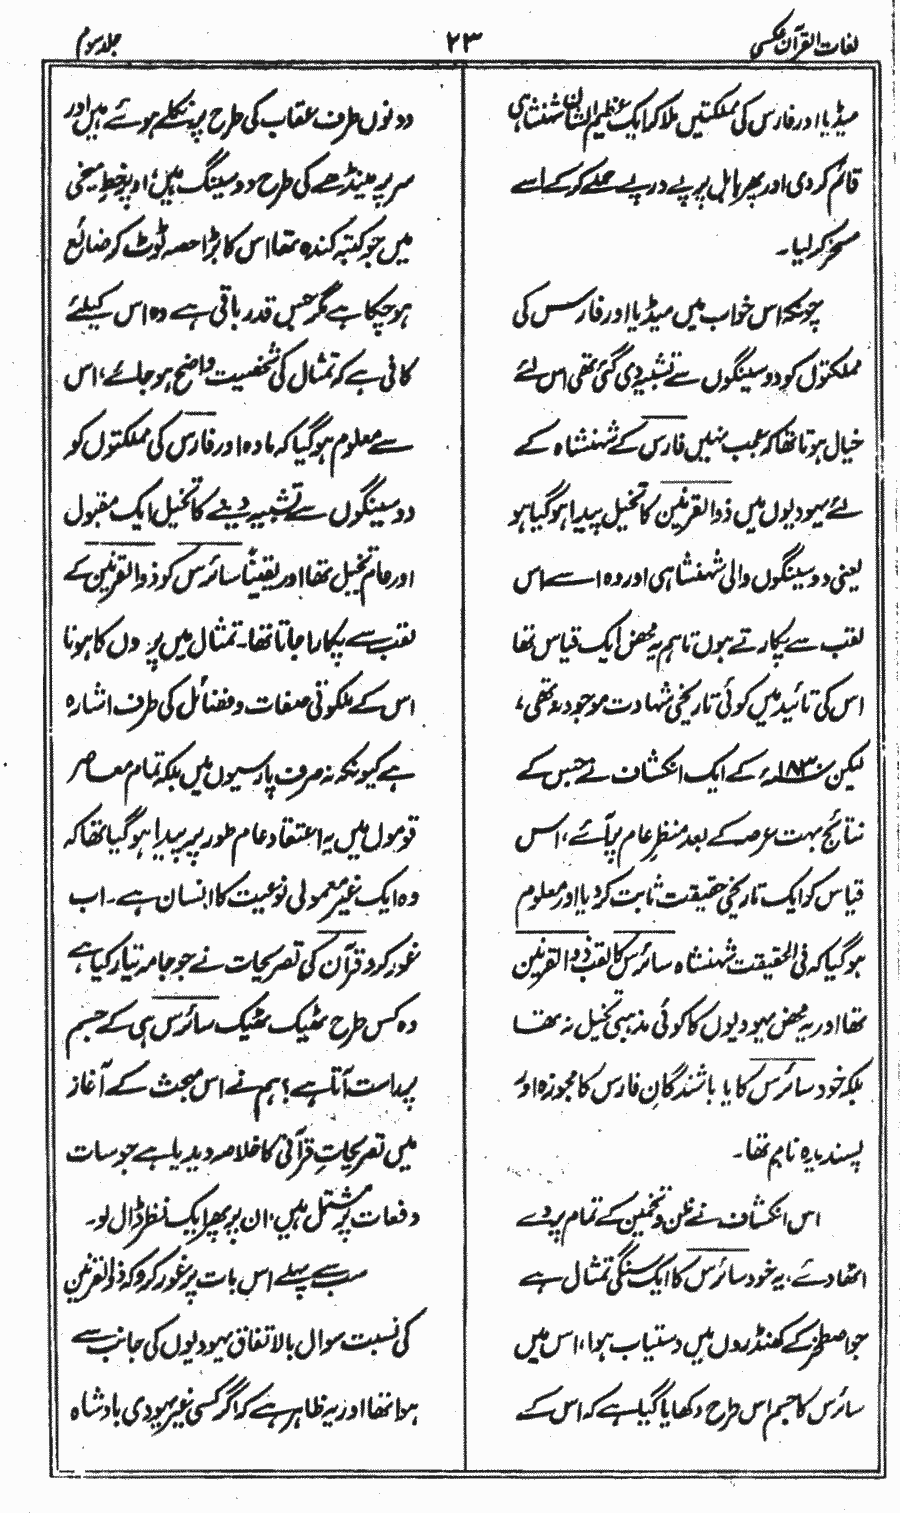 لغات القرآن عکسی
۲۳
جلد سوم
میڈیا اور فارس کی مملکتیں ملا کر ایک عظیم الشان شہنشاہی
قائم کر دی اور پھر بابل پر پے درپے حملے کر کے اسے
مسخر کر لیا۔
چونکہ اس خواب میں میڈیا اور فارس کی
مملکتوں کو دو سینگوں سے تشبیہ دی گئی تھی اس لئے
خیال ہوتا تھا کہ عجب نہیں فارس کے شہنشاہ کے
لئے یہودیوں میں ذوالقرنین کا تخیل پیدا ہو گیا ہو
یعنی دو سینگوں والی شہنشاہی اور وہ اسے اس
لقب سے پکارتے ہوں تاہم یہ محض ایک قیاس تھا
اس کی تائید میں کوئی تاریخی شہادت موجود نہ تھی،
لیکن ۱۸۳۸ء کے ایک انکشاف نے جس کے
نتائج بہت عرصہ کے بعد منظر عام پر آئے، اس
قیاس کو ایک تاریخی حقیقت ثابت کر دیا اور معلوم
ہو گیا کہ فی الحقیقت شہنشاہ سائرس کا لقب ذوالقرنین
تھا اور یہ محض یہودیوں کا کوئی مذہبی تخیل نہ تھا
بلکہ خود سائرس کا یا باشندگانِ فارس کا مجوزہ اور
پسندیدہ نام تھا۔
اس انکشاف نے ظن و تخمین کے تمام پردے
اٹھا دئے، یہ خود سائرس کا ایک سنگی تمثال ہے
جو اصطخر کے کھنڈروں میں دستیاب ہوا، اس میں
سائرس کا جسم اس طرح دکھایا گیا ہے کہ اس کے
دونوں طرف عقاب کی طرح پر نکلے ہوئے ہیں اور
سر پر مینڈھے کی طرح دو سینگ ہیں، اوپر خط میخی
میں جو کتبہ کندہ تھا اس کا بڑا حصہ ٹوٹ کر ضائع
ہو چکا ہے مگر جس قدر باقی ہے وہ اس کیلئے
کافی ہے کہ تمثال کی شخصیت واضح ہو جائے، اس
سے معلوم ہو گیا کہ مادہ اور فارس کی مملکتوں کو
دو سینگوں سے تشبیہ دینے کا تخیل ایک مقبول
اور عام تخیل تھا اور یقیناً سائرس کو ذوالقرنین کے
لقب سے پکارا جاتا تھا۔ تمثال میں پروں کا ہونا
اس کے ملکوتی صفات و فضائل کی طرف اشارہ
ہے کیونکہ نہ صرف پارسیوں میں بلکہ تمام معاصر
قوموں میں یہ اعتقاد عام طور پر پیدا ہو گیا تھا کہ
وہ ایک غیر معمولی نوعیت کا انسان ہے۔ اب
غور کرو قرآن کی تصریحات نے جو جامہ تیار کیا ہے
وہ کس طرح ٹھیک ٹھیک سائرس ہی کے جسم
پر راست آتا ہے؟ ہم نے اس مبحث کے آغاز
میں تصریحاتِ قرآنی کا خلاصہ دیدیا ہے جو سات
دفعات پر مشتمل ہیں، ان پر پھر ایک نظر ڈال لو۔
سب سے پہلے اس بات پر غور کرو کہ ذوالقرنین
کی نسبت سوال بالاتفاق یہودیوں کی جانب سے
ہوا تھا اور یہ ظاہر ہے کہ اگر کسی غیر یہودی بادشاہ